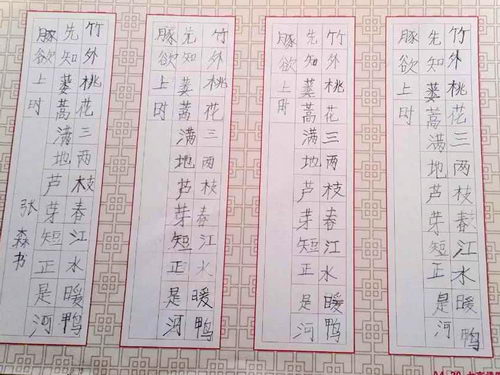 竹外桃花三两枝春江水暖鸭
先知蒌蒿满地芦芽短正是河
豚欲上时
竹外桃花三两枝春江水暖鸭
先知蒌蒿满地芦芽短正是河
豚欲上时
竹外桃花三两枝春江水暖鸭
先知蒌蒿满地芦芽短正是河
豚欲上时
竹外桃花三两枝春江水暖鸭
先知蒌蒿满地芦芽短正是河
豚欲上时
张森书